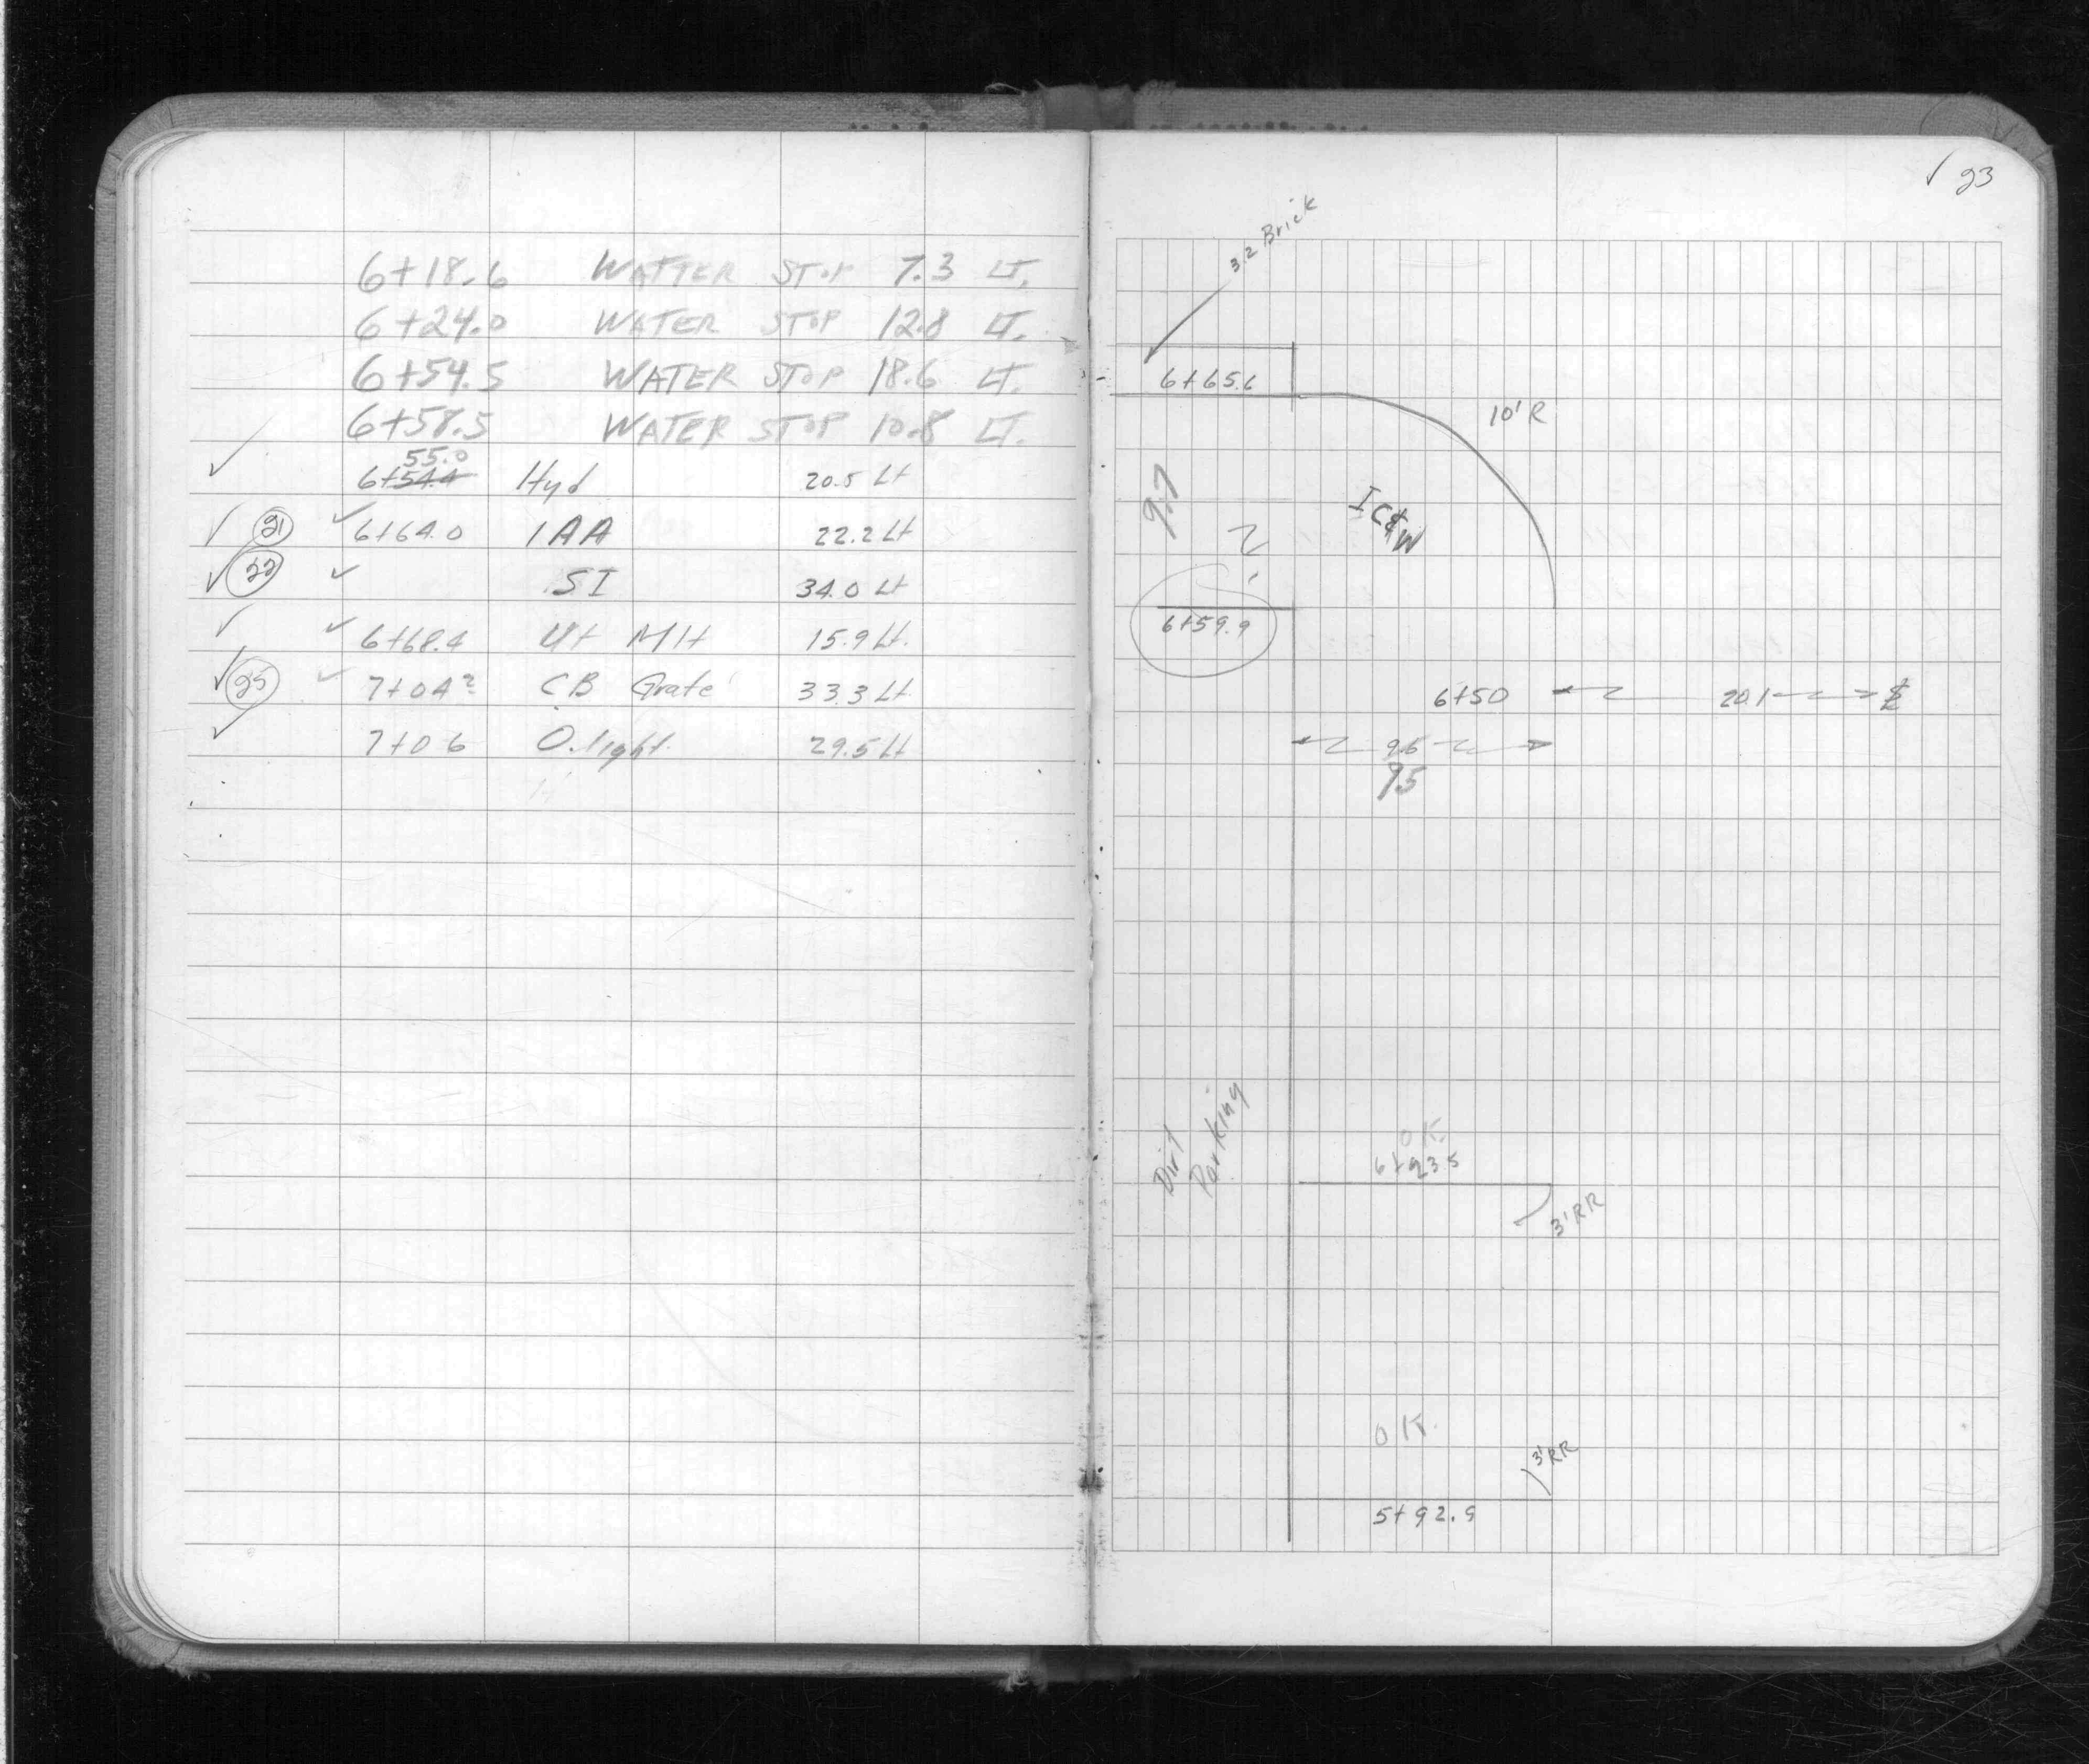 6+18.6 WATTER STOP 7.3 LT.
6+24.0 WATER STOP 12.8 LT.
6+54.5 WATER STOP 18.6 LT.
6+58.5 WATER STOP 10.8 LT.
55.0
✓ 6+54.4 Hyd 20.5 Lt
✓ 21 ✓ 6+64.0 1AA 22.2 Lt
✓ 22 ✓ SI 34.0 Lt
✓ ✓ 6+68.4 Ut MH 15.9 Lt.
✓ 25 ✓ 7+04² CB Grate 33.3 Lt
✓ 7+06 O.light 29.5 Lt
✓ 23
3.2 Brick
6+65.6
10' R
9.7
IC&W
?
6+59.9
6+50 20.1 ⅊
9.6
95
Dirt
Parking
OK
6+23.5
3'RR
OK.
3'RR
5+92.9